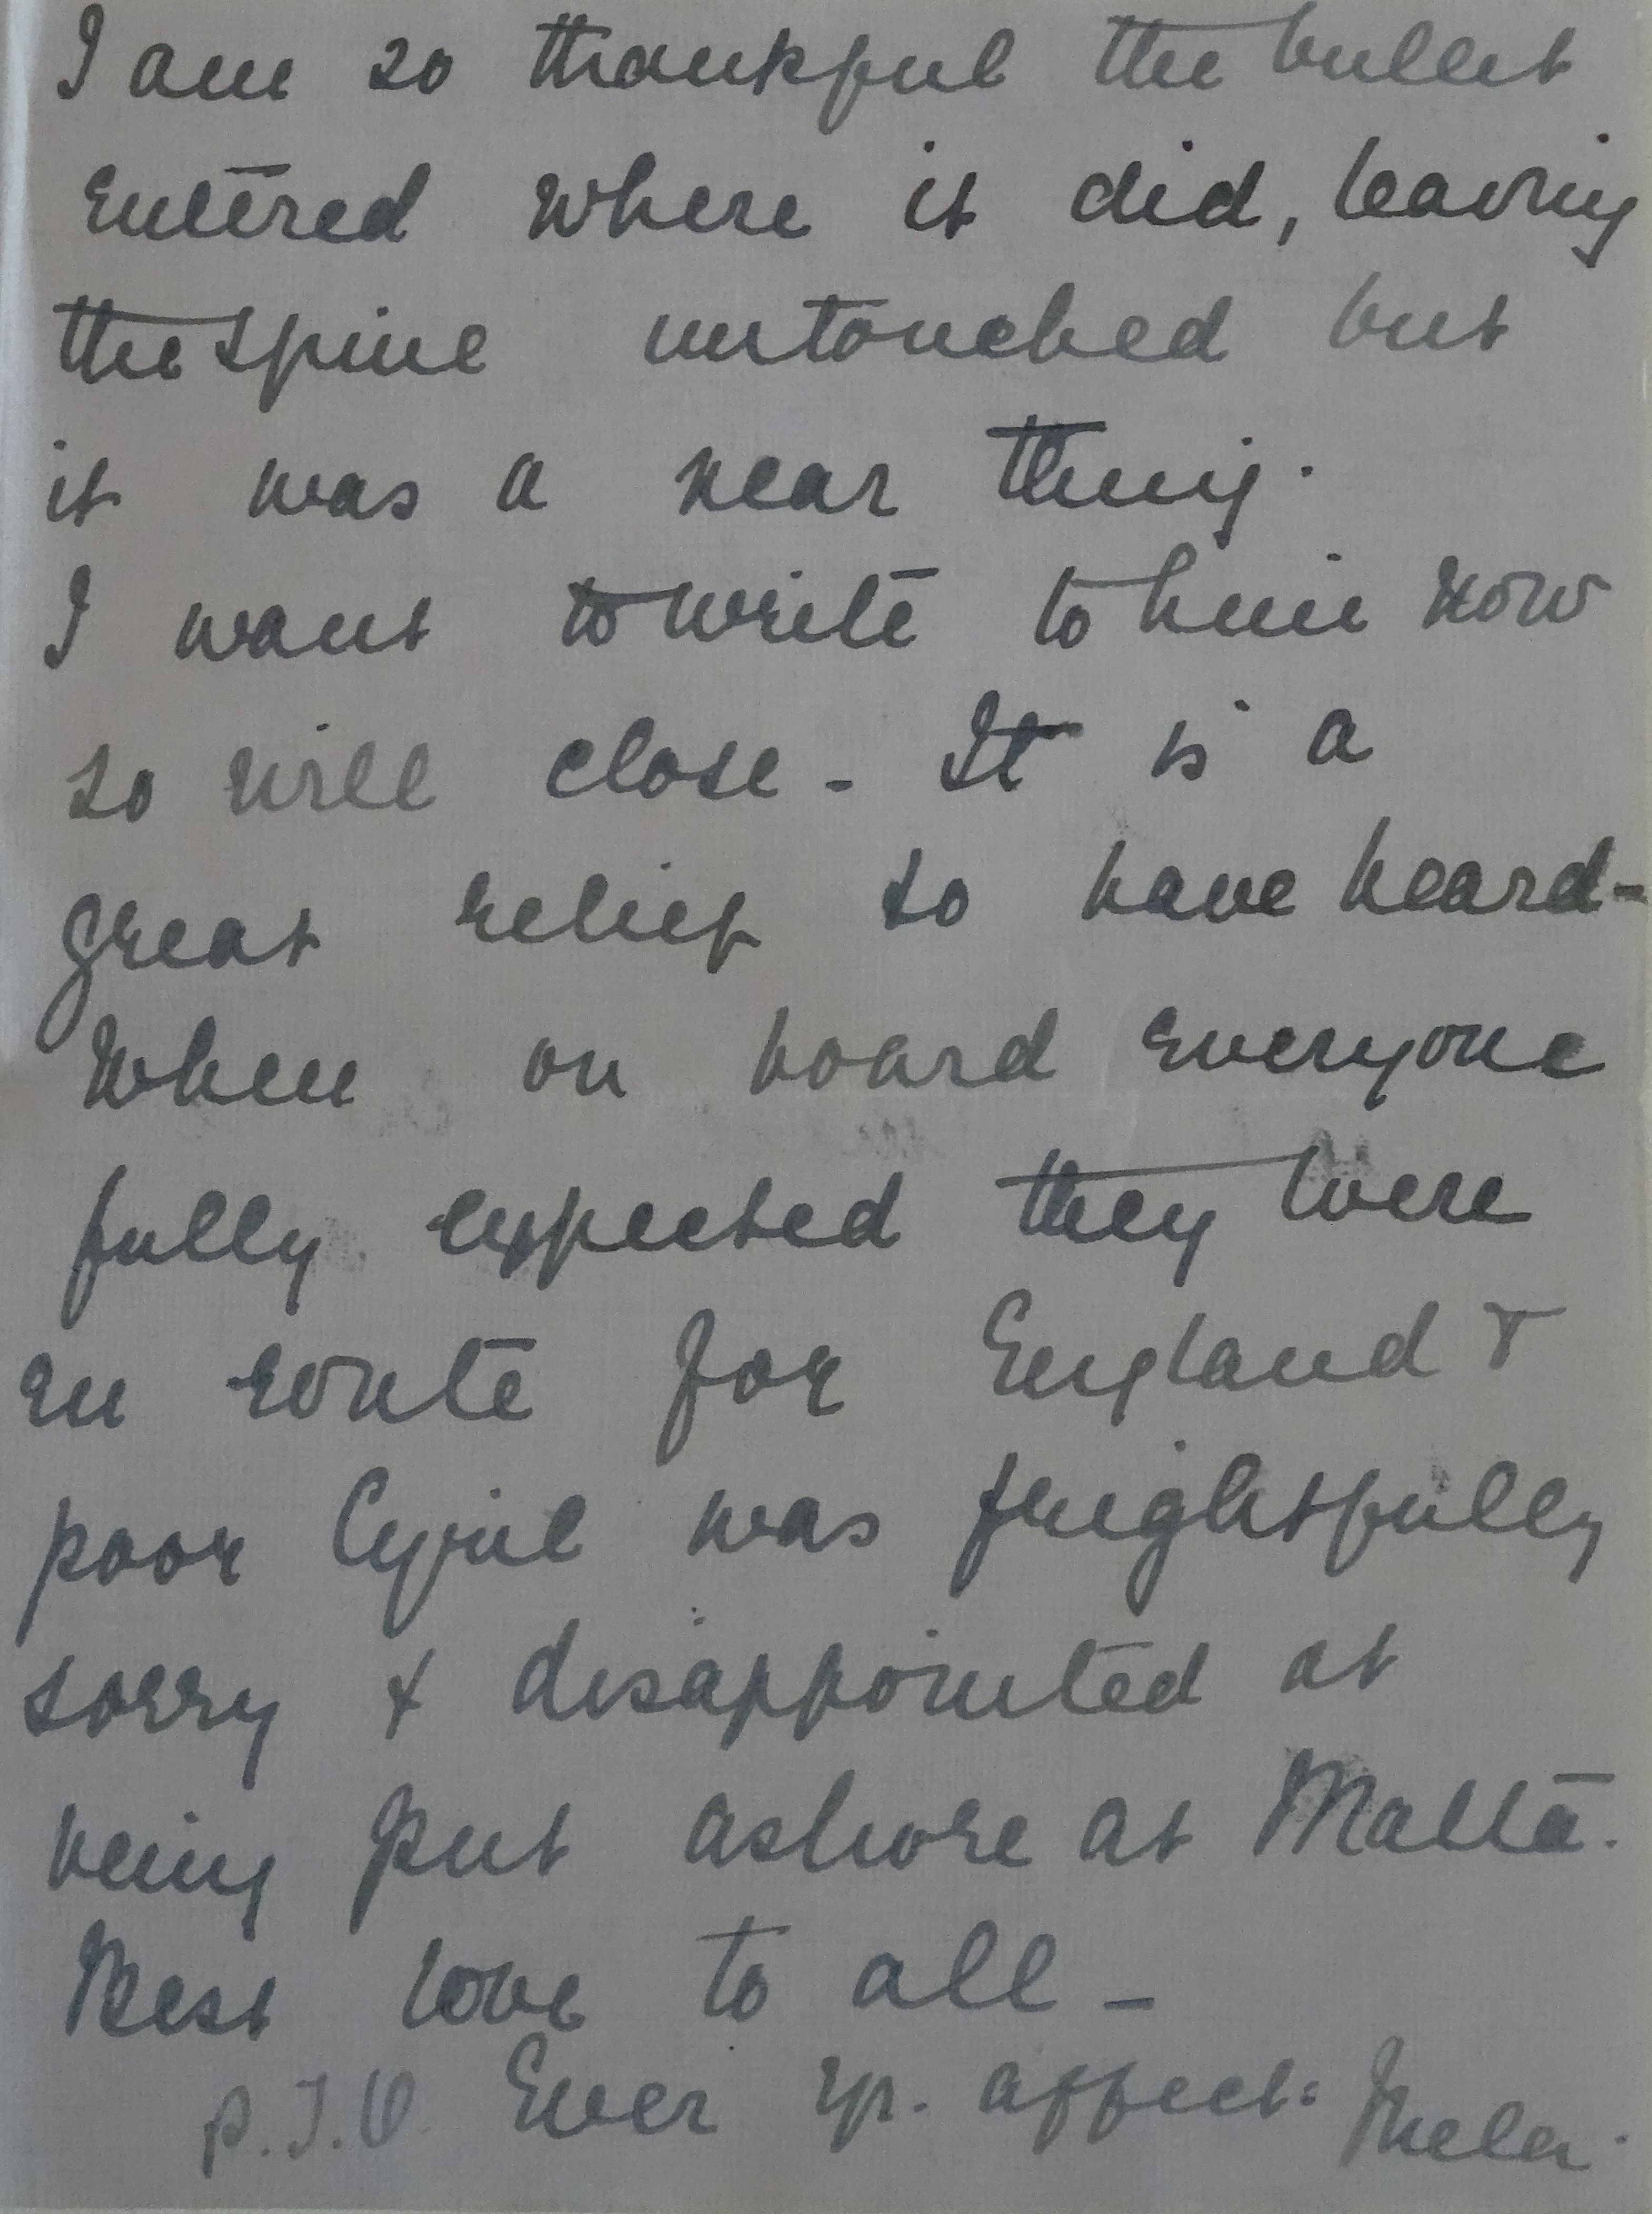 I am so thankful the bullet
entered where it did, leaving
the spine untouched but
it was a near thing.
I want to write to him now
so will close - It is a
great relief to have heard -
When on board everyone
fully expected they were
en route for England &
poor Cyril was frightfully
sorry & disappointed at
being put ashore at Malta.
Best love to all -
P.T.O. Ever yr. affect: